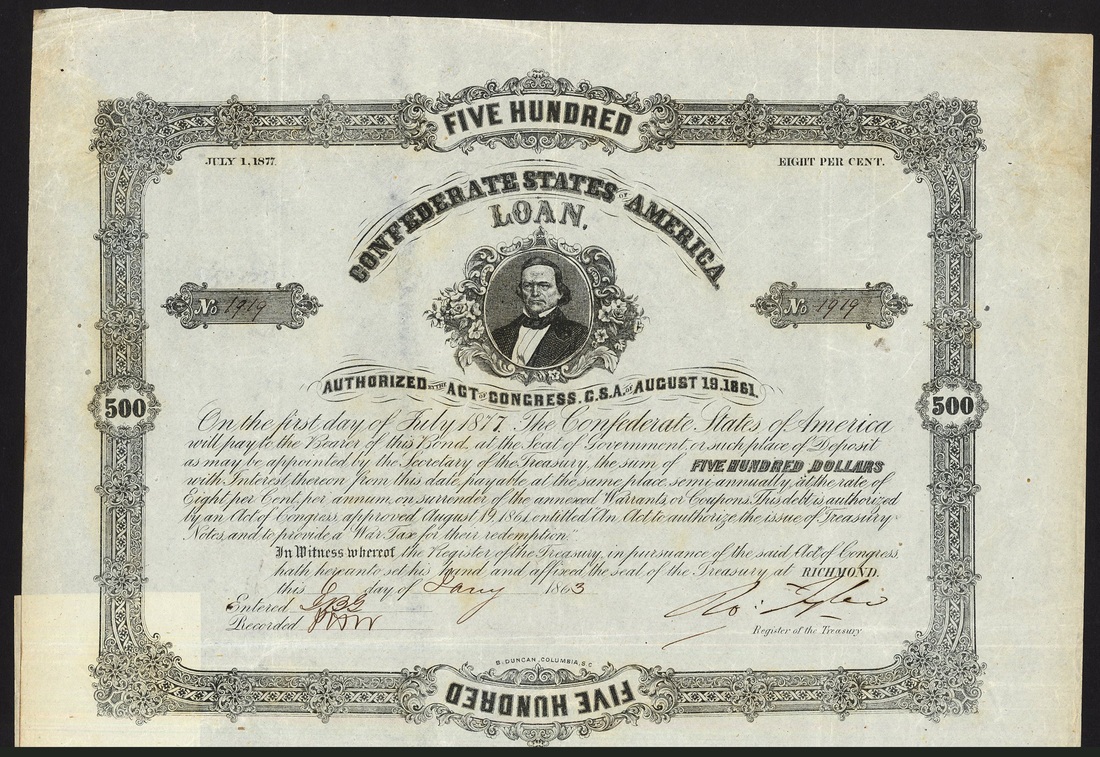 FIVE HUNDRED
JULY 1, 1877.
EIGHT PER CENT.
CONFEDERATE STATES OF AMERICA
LOAN.
No 1919
No 1919
AUTHORIZED BY THE ACT OF CONGRESS. C.S.A. OF AUGUST 19. 1861.
500
500
On the first day of July 1877, The Confederate States of America
will pay to the Bearer of this Bond, at the Seat of Government, or such place of Deposit
as may be appointed by the Secretary of the Treasury, the sum of FIVE HUNDRED DOLLARS
with Interest thereon from this date, payable at the same place semi-annually, at the rate of
Eight per Cent, per annum, on surrender of the annexed Warrants, or Coupons. This debt is authorized
by an Act of Congress, approved August 19, 1861, entitled "An Act to authorize the issue of Treasury
Notes, and to provide a War Tax for their redemption."
In Witness whereof the Register of the Treasury, in pursuance of the said Act of Congress,
hath hereunto set his hand and affixed the seal of the Treasury at RICHMOND.
this 6 day of Jany 1863
Entered
Recorded
Ro: Tyler
Register of the Treasury
B. DUNCAN, COLUMBIA, S.C.
FIVE HUNDRED